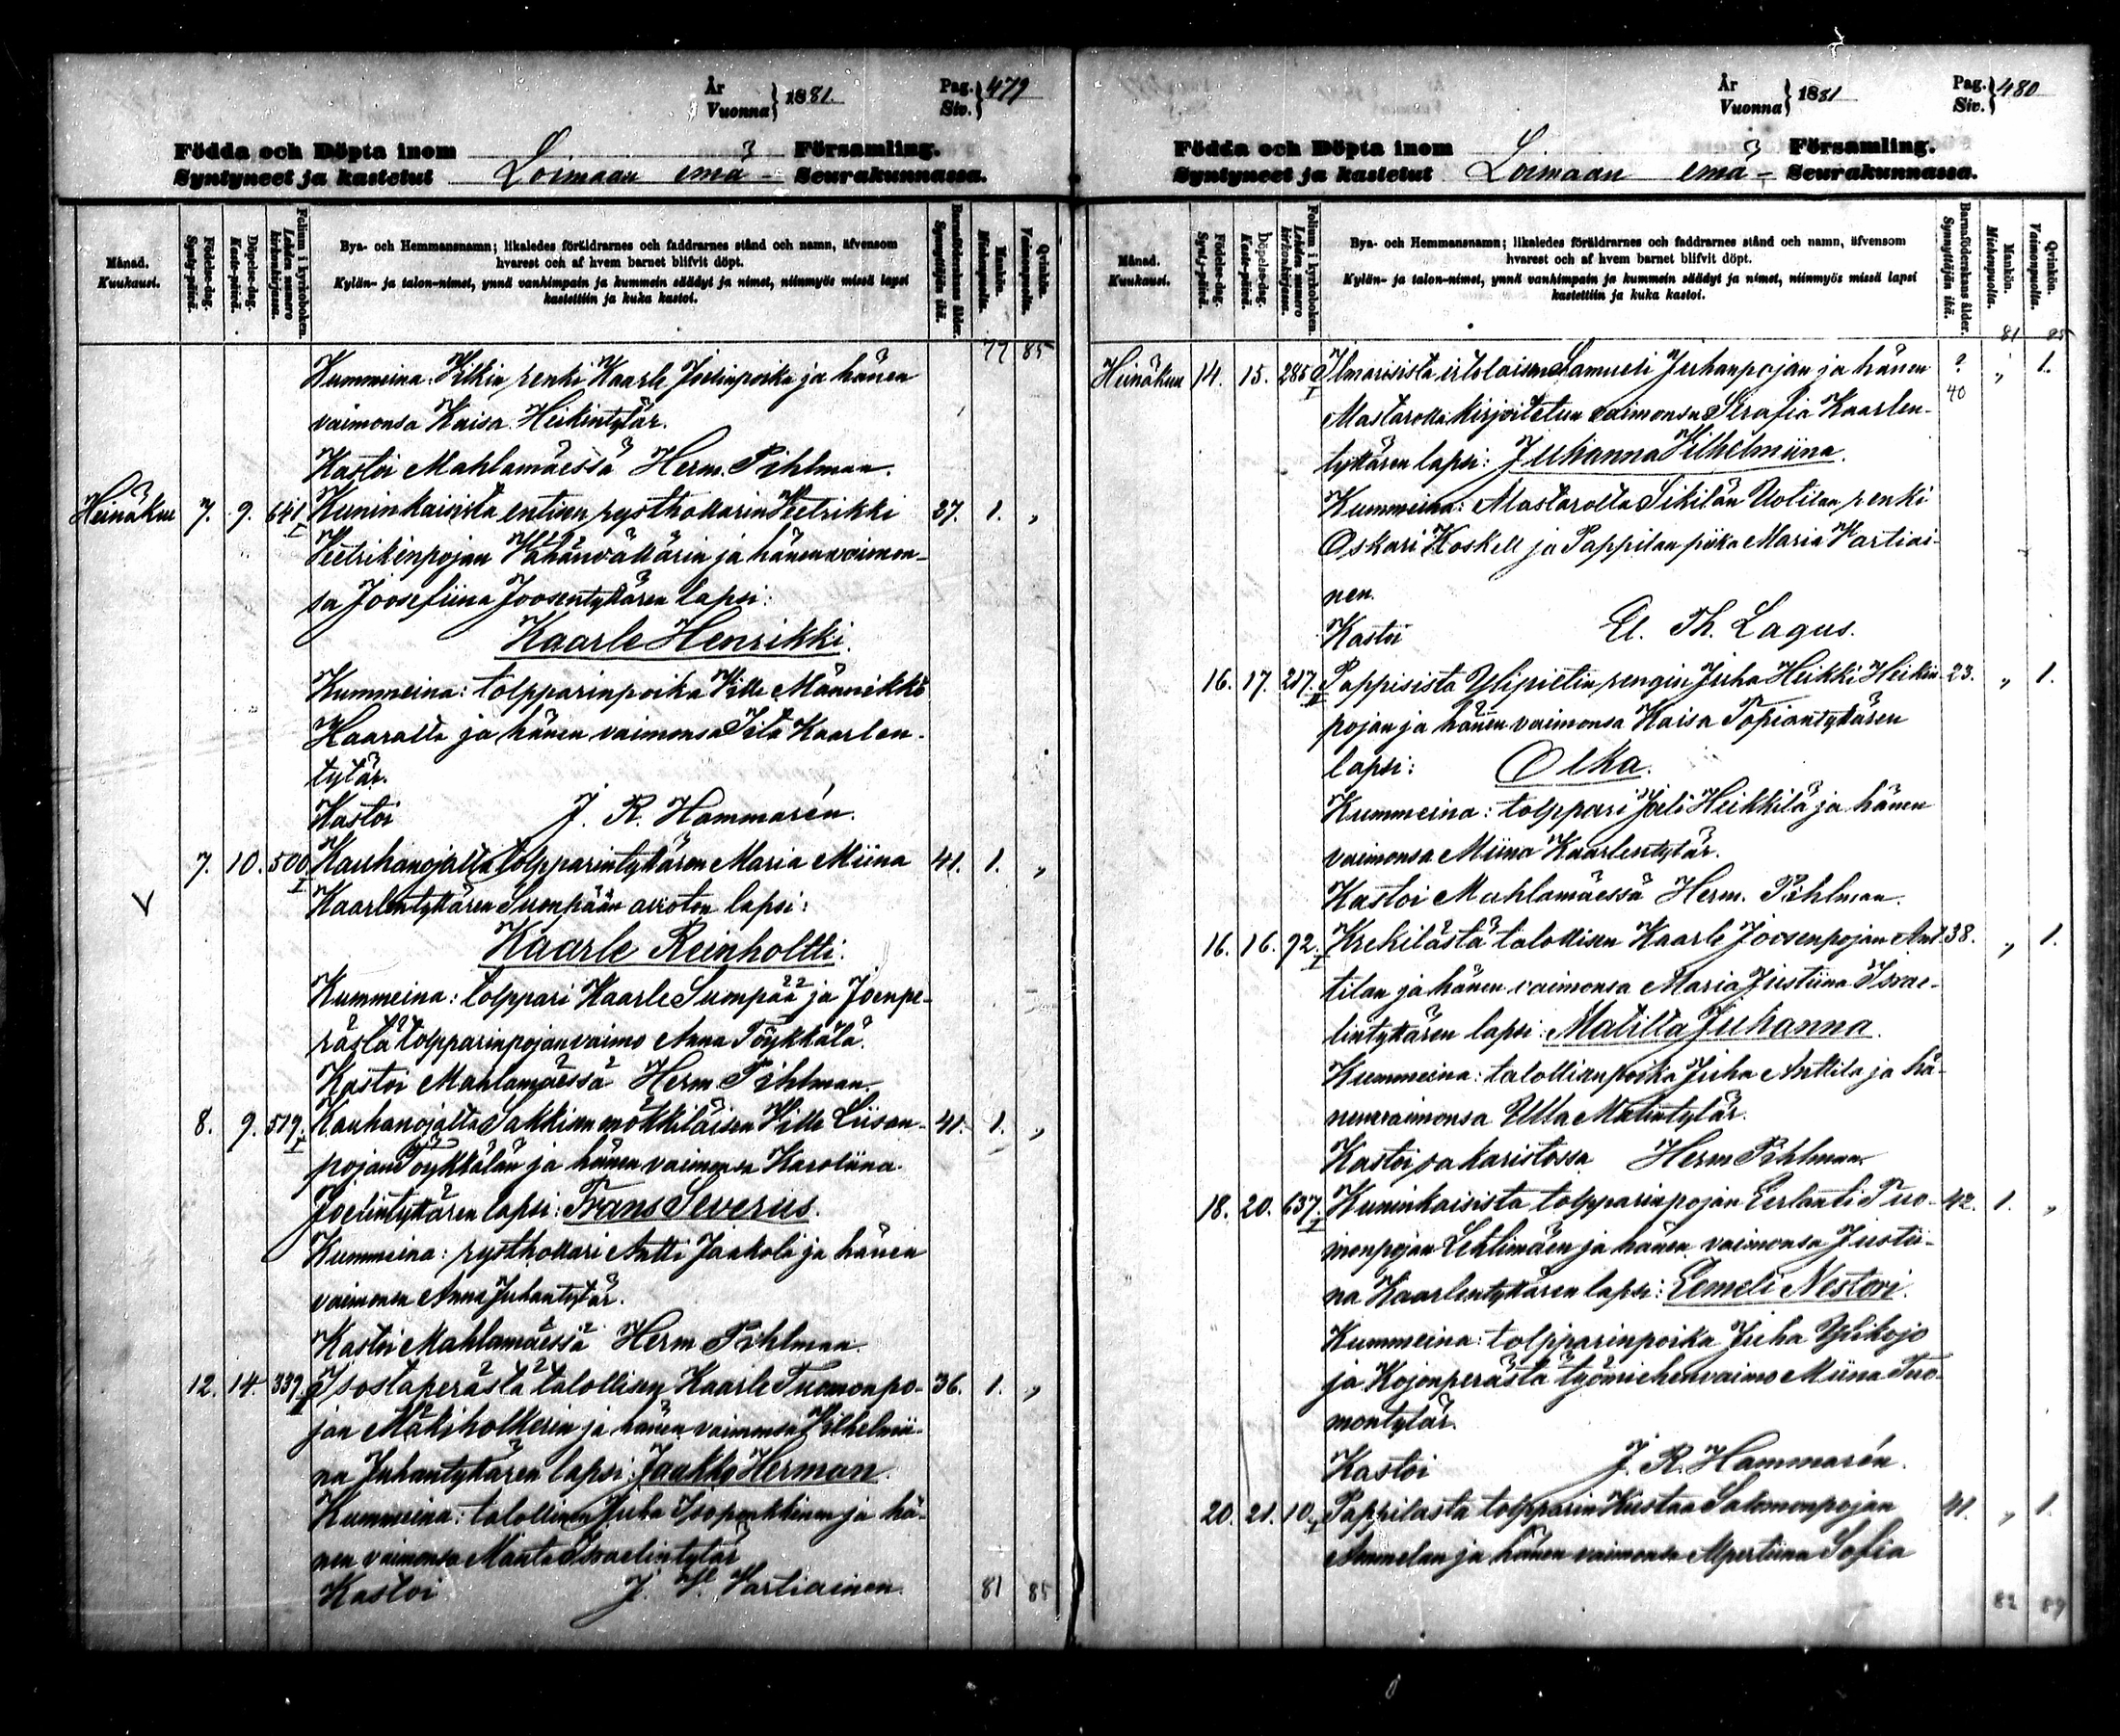 År
Vuonna } 1881.
Pag.
Siv. } 479
Födda och Döpta inom Församling.
Syntyneet ja kastetut Loimaan emä- Seurakunnassa.
Månad.
Kuukausi.
Födelse-dag.
Synty-päivä.
Döpelse-dag.
Kaste-päivä.
Folium i kyrkoboken.
Lehden numero kirkonkirjassa.
Bya- och Hemmansnamn; likaledes föräldrarnes och faddrarnes stånd och namn, äfvensom
hvarest och af hvem barnet blifvit döpt.
Kylän- ja talon-nimet, ynnä vanhimpain ja kummein säädyt ja nimet, niinmyös missä lapsi
kastettiin ja kuka kastoi.
Barnaföderskans ålder.
Synnyttäjän ikä.
Mankön.
Miehenpuolia.
Qvinkön.
Vaimonpuolia.
77 85
Kummeina: Kilkin renki Kaarle Joelinpoika ja hänen
vaimonsa Kaisa Heikintytär.
Kastoi Mahlamäessä Herm. Pihlman.
Heinäkuu 7. 9. 641 I Kuninkaisista entisen rysthollarin Petrikki 27. 1. „
Peetrikinpojan Vähänvättärin ja hänen vaimon-
sa Joosefiina Joosentyttären lapsi:
Kaarle Henrikki.
Kummeina: tolpparinpoika Ville Männikkö
Haaralta ja hänen vaimonsa Iita Kaarlen-
tytär.
Kastoi J. R. Hammarén.
7. 10. 500. I Kauhanojalta tolpparintyttären Maria Miina 41. 1. „
V Kaarlentyttären Suonpään avioton lapsi:
Kaarle Reinholtti.
Kummeina: tolppari Kaarle Suonpää ja Joenpe-
rästä tolpparinpojanvaimo Anna Töykkälä.
Kastoi Mahlamäessä Herm. Pihlman.
8. 9. 519. I Kauhanojalta Sakkisen mökkiläisen Ville Liisan- 41. 1. „
pojan Töykkälän ja hänen vaimonsa Karoliina
Joelintyttären lapsi: Frans Severius.
Kummeina: rysthollari Antti Jaakola ja hänen
vaimonsa Anna Juhantytär.
Kastoi Mahlamäessä Herm. Pihlman
12. 14. 339. I Isostaperästä talollisen Kaarle Tuomonpo- 36. 1. „
jan Mäkihollkerin ja hänen vaimonsa Vilhelmii-
na Juhantyttären lapsi: Jaakko Herman.
Kummeina: talollinen Juha Isoperkkinen ja hä-
nen vaimonsa Manta Israelintytär
Kastoi J. V. Vartiainen.
81 85
År
Vuonna } 1881
Pag.
Siv. } 480
Födda och Döpta inom Församling.
Syntyneet ja kastetut Loimaan emä- Seurakunnassa.
Månad.
Kuukausi.
Födelse-dag.
Synty-päivä.
Döpelse-dag.
Kaste-päivä.
Folium i kyrkoboken.
Lehden numero kirkonkirjassa.
Bya- och Hemmansnamn; likaledes föräldrarnes och faddrarnes stånd och namn, äfvensom
hvarest och af hvem barnet blifvit döpt.
Kylän- ja talon-nimet, ynnä vanhimpain ja kummein säädyt ja nimet, niinmyös missä lapsi
kastettiin ja kuka kastoi.
Barnaföderskans ålder.
Synnyttäjän ikä.
Mankön.
Miehenpuolia.
Qvinkön.
Vaimonpuolia.
81 85
Heinäkuu 14. 15. 285 I Ilmarisista irtolaisen Samueli Juhanpojan ja hänen ? „ 1.
40
Mastarolla kirjoitetun vaimonsa Serafia Kaarlen-
tyttären lapsi: Juhanna Vilhelmiina.
Kummeina: Mastarolta Sikilän Uotilan renki
Oskari Koskell ja Pappilan piika Maria Vartiai-
nen.
Kastoi El. Th. Lagus.
16. 17. 217. II Pappisista Ylipietin rengin Juha Heikki Heikin- 23. „ 1.
pojan ja hänen vaimonsa Kaisa Topiantyttären
lapsi: Olka.
Kummeina: tolppari Joeli Heikkilä ja hänen
vaimonsa Miina Kaarlentytär.
Kastoi Mahlamäessä Herm. Pihlman.
16. 16. 92. I Krekilästä talollisen Kaarle Joosenpojan Ant- 38. „ 1.
tilan ja hänen vaimonsa Maria Justiina Israe-
lintyttären lapsi: Matilta Juhanna.
Kummeina: talollisenpoika Juha Anttila ja hä-
nen vaimonsa Ulla Matintytär.
Kastoi sakaristossa Herm Pihlman.
18. 20. 637. I Kuninkaisista tolpparinpojan Eerlanti Tuo- 42. 1. „
monpojan Lehtimäen ja hänen vaimonsa Justii-
na Kaarlentyttären lapsi: Eemeli Nestori.
Kummeina: tolpparinpoika Juha Ylikojo
ja Kojonperästä työmiehenvaimo Miina Tuo-
montytär.
Kastoi J. R. Hammarén.
20. 21. 10. I Pappilasta tolpparin Kustaa Salomonpojan 41. „ 1.
Ammelan ja hänen vaimonsa Alpertiina Sofia
82 89